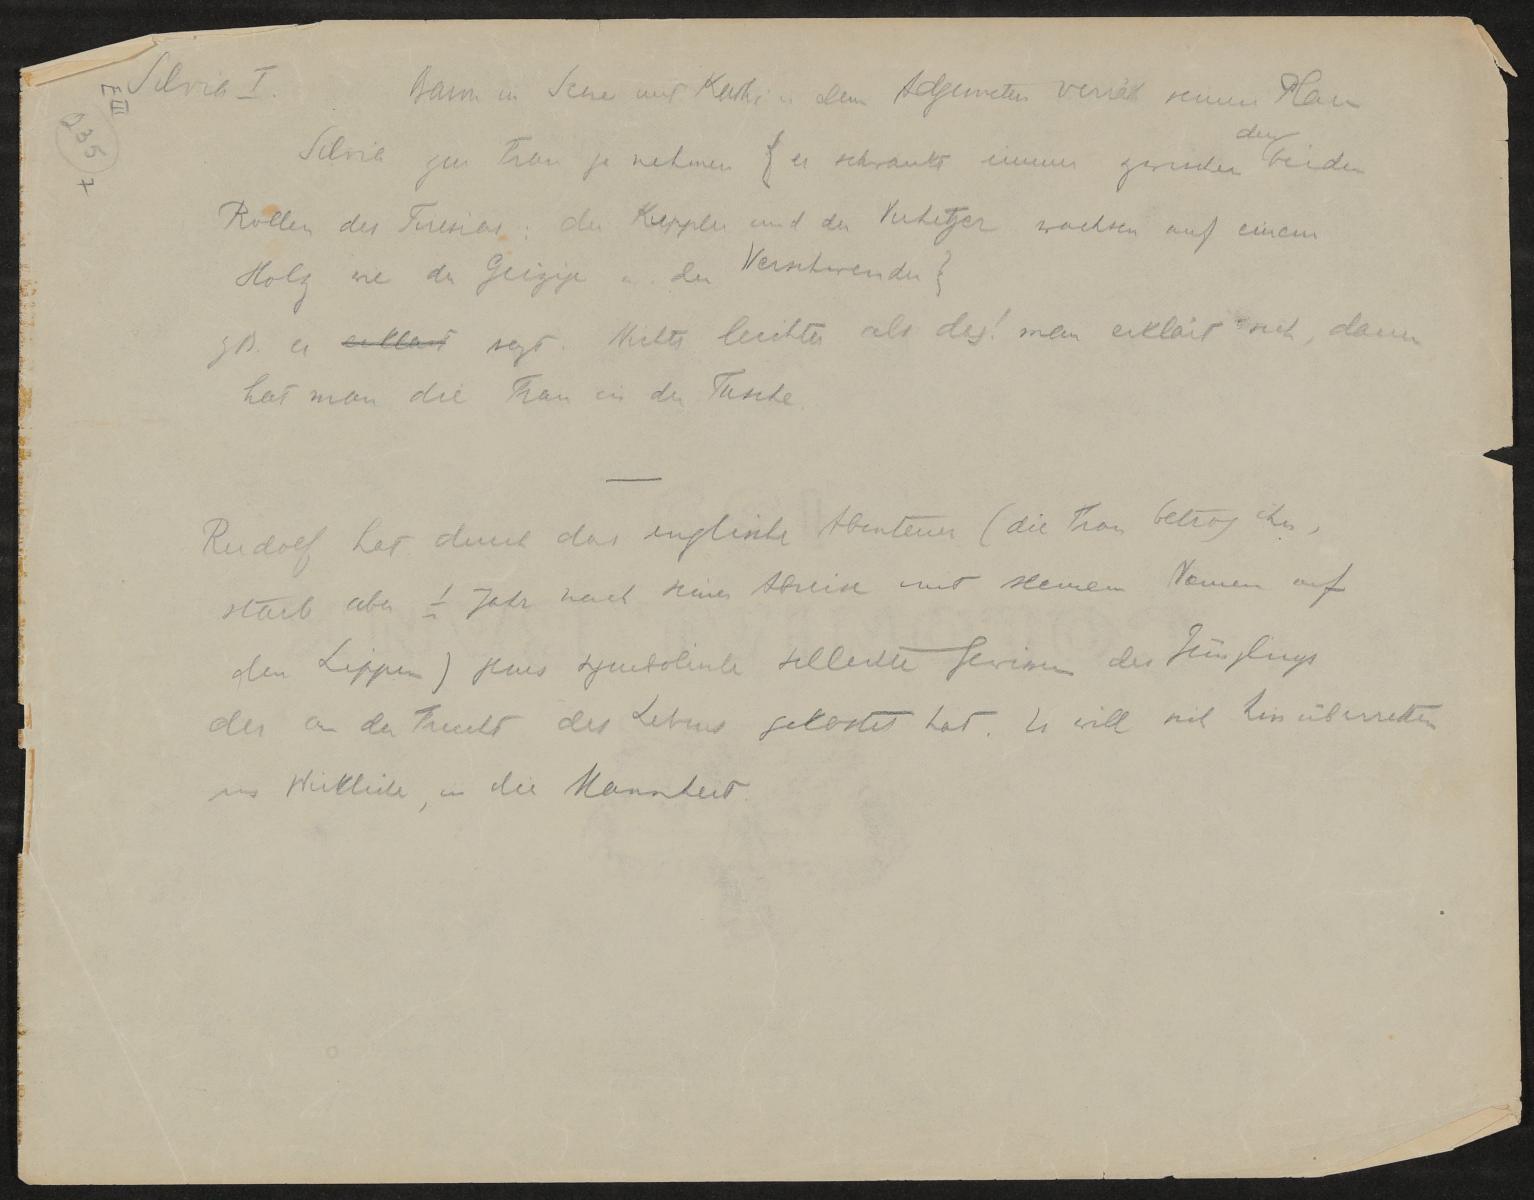 Silvia I. Baron in Scene mit Kathi u dem Adjuncten verräth seinen Plan
E III
235
Silvia zur Frau zu nehmen { er schwankt immer zwischen den beiden
Rollen des Tiresias: der Kuppler und der Verhetzer wachsen auf einem
Holz wie der Geizige u. der Verschwender }
zB. er erklärt sagt. Nichts leichter als das! man erklärt sich, dann
hat man die Frau in der Tasche.
Rudolf hat durch das englische Abenteuer (die Frau betrog ihn,
starb aber 1 Jahr nach seiner Abreise mit seinem Namen auf
den Lippen) jenes symbolische schlechte Gewissen des Jünglings
der an der Frucht des Lebens gekostet hat. Er will sich hinüberretten
ins Wirkliche, in die Mannheit.